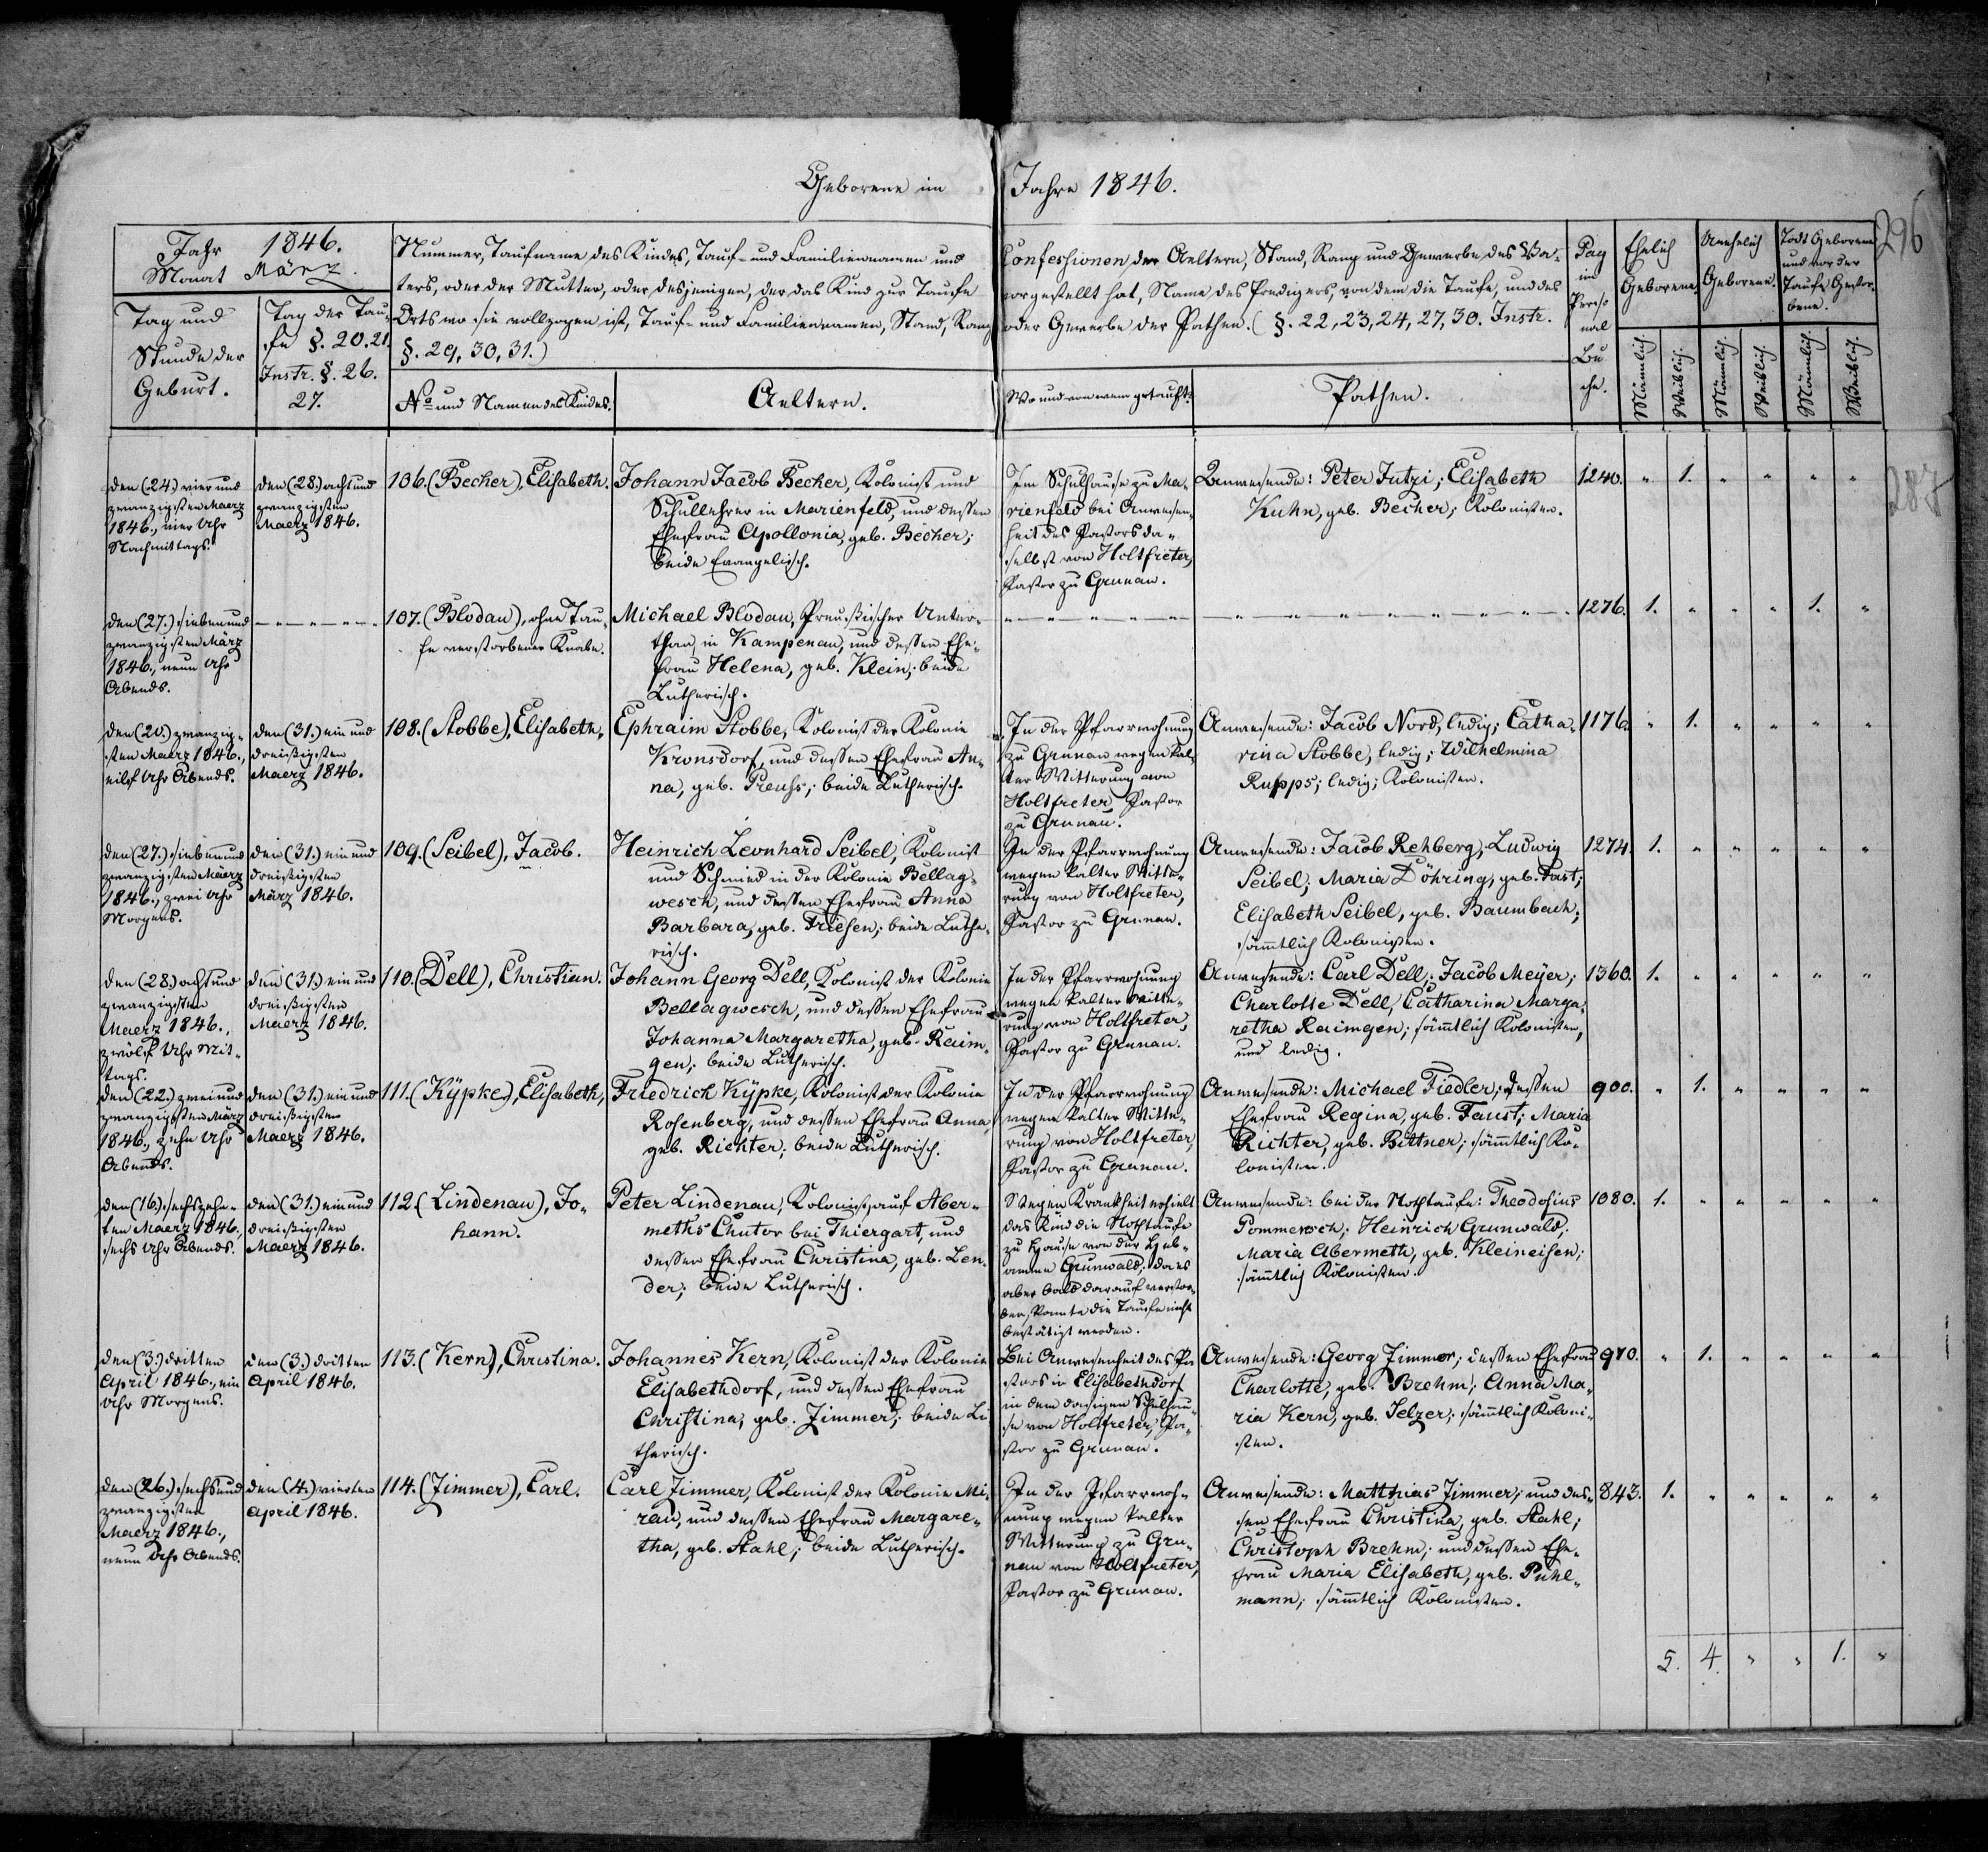 Geborene im Jahre 1846.
296
287
Jahr 1846.
Monat März.
Tag und
Stunde der
Geburt.
Tag der Tau-
fe §. 20. 21.
Instr. §. 26.
27.
Nummer, Taufname des Kindes, Tauf- und Familiennamen und Confessionen der Aeltern, Stand, Rang und Gewerbe des Va-
ters, oder der Mutter, oder desjenigen, der das Kind zur Taufe vorgestellt hat, Name des Predigers, von dem die Taufe, und des
Orts wo sie vollzogen ist, Tauf- und Familiennamen, Stand, Rang oder Gewerbe der Pathen. (§. 22, 23, 24, 27, 30. Instr.
§. 29, 30, 31.)
No und Namen des Kindes.
Aeltern.
Wo und von wem getauft.
Pathen.
Pag
im
Perso
nal
Bu
che.
Ehelich
Geborene.
Unehelich
Geborene.
Todt Geborene
und vor der
Taufe Gestor-
bene.
Männlich.
Weiblich.
Männlich.
Weiblich.
Männlich.
Weiblich.
den (24.) vier und
zwanzigsten Maerz
1846., vier Uhr
Nachmittags.
den (28.) acht und
zwanzigsten
Maerz 1846.
106. (Becher), Elisabeth.
Johann Jacob Becher, Kolonist und
Schullehrer in Marienfeld, und dessen
Ehefrau Apollonia, geb. Becher;
beide Evangelisch.
Im Schulhause zu Ma-
rienfeld bei Anwesen-
heit des Pastors da-
selbst von Holtfreter,
Pastor zu Grunau.
Anwesende: Peter Jutzi; Elisabeth
Kuhn, geb. Becher; Kolonisten.
1240. " 1. " " " "
den (27.) sieben und
zwanzigsten März
1846., neun Uhr
Abends.
107. (Blodau), ohne Tau-
fe verstorbener Knabe.
Michael Blodau, Preußischer Unter-
than, in Kampenau, und dessen Ehe-
frau Helena, geb. Klein; beide
Lutherisch.
1276. 1. " " " 1. "
den (20.) zwanzig-
sten Maerz 1846.,
eilf Uhr Abends.
den (31.) ein und
dreißigsten
Maerz 1846.
108. (Stobbe), Elisabeth,
Ephraim Stobbe, Kolonist der Kolonie
Kronsdorf, und dessen Ehefrau An-
na, geb. Preuhs; beide Lutherisch.
In der Pfarrwohnung
zu Grunau wegen kal-
ter Witterung von
Holtfreter, Pastor
zu Grunau.
Anwesende: Jacob Nord, ledig; Catha-
rina Stobbe, ledig; Wilhelmina
Rupps; ledig; Kolonisten.
1176. " 1. " " " "
den (27.) sieben und
zwanzigsten Maerz
1846., zwei Uhr
Morgens.
den (31.) ein und
dreißigsten
März 1846.
109. (Seibel), Jacob.
Heinrich Leonhard Seibel, Kolonist
und Schmied in der Kolonie Bellag-
wesch, und dessen Ehefrau Anna
Barbara, geb. Friesen; beide Luthe-
risch.
In der Pfarrwohnung
wegen kalter Witte-
rung von Holtfreter,
Pastor zu Grunau.
Anwesende: Jacob Rehberg; Ludwig
Seibel; Maria Döhring, geb. Fast;
Elisabeth Seibel, geb. Baumbach;
sämtlich Kolonisten.
1274. 1. " " " " "
den (28.) acht und
zwanzigsten
Maerz 1846.,
zwölf Uhr Mit-
tags.
den (31.) ein und
dreißigsten
Maerz 1846.
110. (Dell), Christian.
Johann Georg Dell, Kolonist der Kolonie
Bellagwesch, und dessen Ehefrau
Johanna Margaretha, geb. Raim-
gen; beide Lutherisch.
In der Pfarrwohnung
wegen kalter Witte-
rung von Holtfreter,
Pastor zu Grunau.
Anwesende: Carl Dell; Jacob Meyer;
Charlotte Dell; Catharina Marga-
retha Raimgen; sämtlich Kolonisten,
und ledig.
1360. 1. " " " " "
den (22.) zwei und
zwanzigsten März
1846., zehn Uhr
Abends.
den (31.) ein und
dreißigsten
Maerz 1846.
111. (Kÿpke), Elisabeth,
Friedrich Kÿpke, Kolonist der Kolonie
Rosenberg, und dessen Ehefrau Anna,
geb. Richter; beide Lutherisch.
In der Pfarrwohnung
wegen kalter Witte-
rung von Holtfreter,
Pastor zu Grunau.
Anwesende: Michael Fiedler; dessen
Ehefrau Regina, geb. Faust; Maria
Richter, geb. Bittner; sämtlich Ko-
lonisten.
900. " 1. " " " "
den (16.) sechszehn-
ten Maerz 1846,
sechs Uhr Abends.
den (31.) ein und
dreißigsten
Maerz 1846.
112. (Lindenau), Jo-
hann.
Peter Lindenau, Kolonist auf Aber-
meths Chutor bei Thiergart, und
dessen Ehefrau Christina, geb. Len-
der; beide Lutherisch.
Wegen Krankheit erhielt
das Kind die Nothtaufe
zu Hause von der Heb-
amme Grunwald; da es
aber bald darauf verstor-
ben, konnte die Taufe nicht
bestätigt werden.
Anwesende: bei der Nothtaufe: Theodosius
Pommersch; Heinrich Grunwald;
Maria Abermeth, geb. Kleineisen;
sämtlich Kolonisten.
1080. 1. " " " " "
den (3.) dritten
April 1846., ein
Uhr Morgens.
den (3.) dritten
April 1846.
113. (Kern), Christina.
Johannes Kern, Kolonist der Kolonie
Elisabethdorf, und dessen Ehefrau
Christina, geb. Zimmer; beide Lu
therisch.
Bei Anwesenheit des Pa
stors in Elisabethdorf
in dem dasigen Schulhau-
se von Holtfreter, Pa-
stor zu Grunau.
Anwesende: Georg Zimmer; dessen Ehefrau
Charlotte, geb. Brehm; Anna Ma-
ria Kern, geb. Selzer; sämtlich Koloni-
sten.
970. " 1. " " " "
den (26.) sechs und
zwanzigsten
Maerz 1846.,
neun Uhr Abends.
den (4.) vierten
April 1846.
114. (Zimmer), Carl.
Carl Zimmer, Kolonist der Kolonie Mi-
rau, und dessen Ehefrau Margare-
tha, geb. Stahl; beide Lutherisch.
In der Pfarrwoh-
nung wegen kalter
Witterung zu Gru-
nau von Holtfreter,
Pastor zu Grunau.
Anwesende: Matthias Zimmer; und des-
sen Ehefrau Christina, geb. Stahl;
Christoph Brehm; und dessen Ehe-
frau Maria Elisabeth, geb. Puhl-
mann; sämtlich Kolonisten.
843. 1. " " " " "
5. 4. " " 1. "